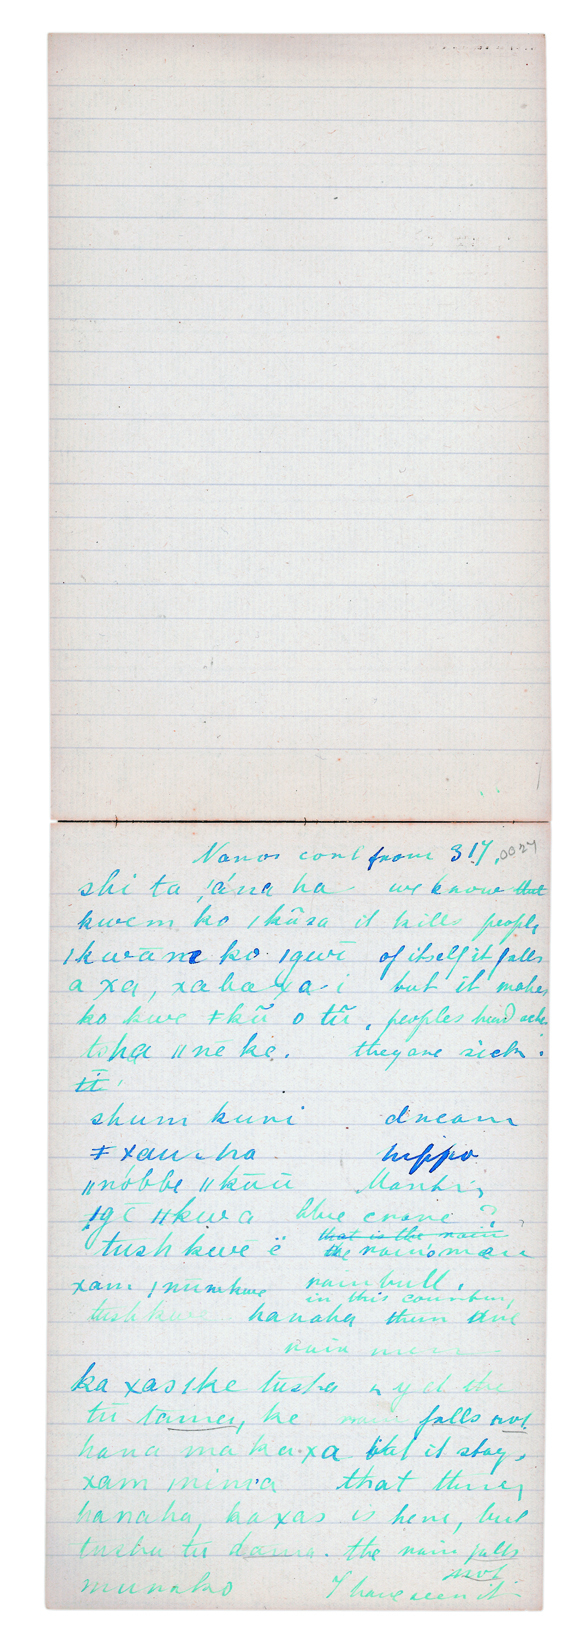 Nanos cont from 317. 0027
shi ta |ána ha we know that
kwem ko |kũza it kills people
|kwāme ko |gwī of itself it falls
a xa, xaha xa-i but it makes
ko kwe ǂkũ o tũ, peoples head ache
tsha ǁne ke. they are sick.
tī
shum kuni dream
ǂxau-ha hippo
ǁnóbbe ǁkūū
ǃgē ǁkwa blue crane ?
that is the rain
tush kwe ë the rain's man
xam |numkwe rain bull.
in this country
tush kwe hanaha them the
rain
ka xas|ke tusha
tū tamea, ke falls not
hana ma ka xa but it stays
xam that thing
hanaha, kaxas is here, but
tusha tu dama. the rain falls
not
munaho I have seen it -